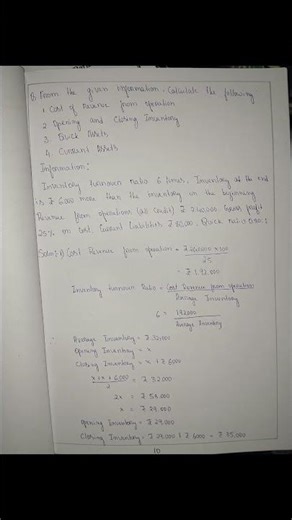 Q. From the given information, Calculate the following
1. Cost of Revenue from operation
2. Opening and Closing Inventory
3. Quick Assets
4. Current Assets
Information:
Inventory turnover ratio 6 times, Inventory at the end
is ₹ 6000 more than the inventory in the beginning
Revenue from operations (all Credit) ₹ 2,40,000, Gross profit
25% on cost, Current Liabilities ₹ 80,000, Quick ratio
Cost Revenue from operation =
= ₹ 1,92,000
Inventory turnover Ratio = Cost Revenue from operation
Average Inventory
6 = 192000
Average Inventory
Average Inventory = ₹ 32,000
Opening Inventory = x
Closing Inventory = x + ₹ 6000
x + x + 6,000 = ₹ 32,000
2
2x = ₹ 58,000
x = ₹ 29,000
Opening Inventory = ₹ 29,000
Closing Inventory = ₹ 29,000 + ₹ 6000 = ₹ 35,000
10